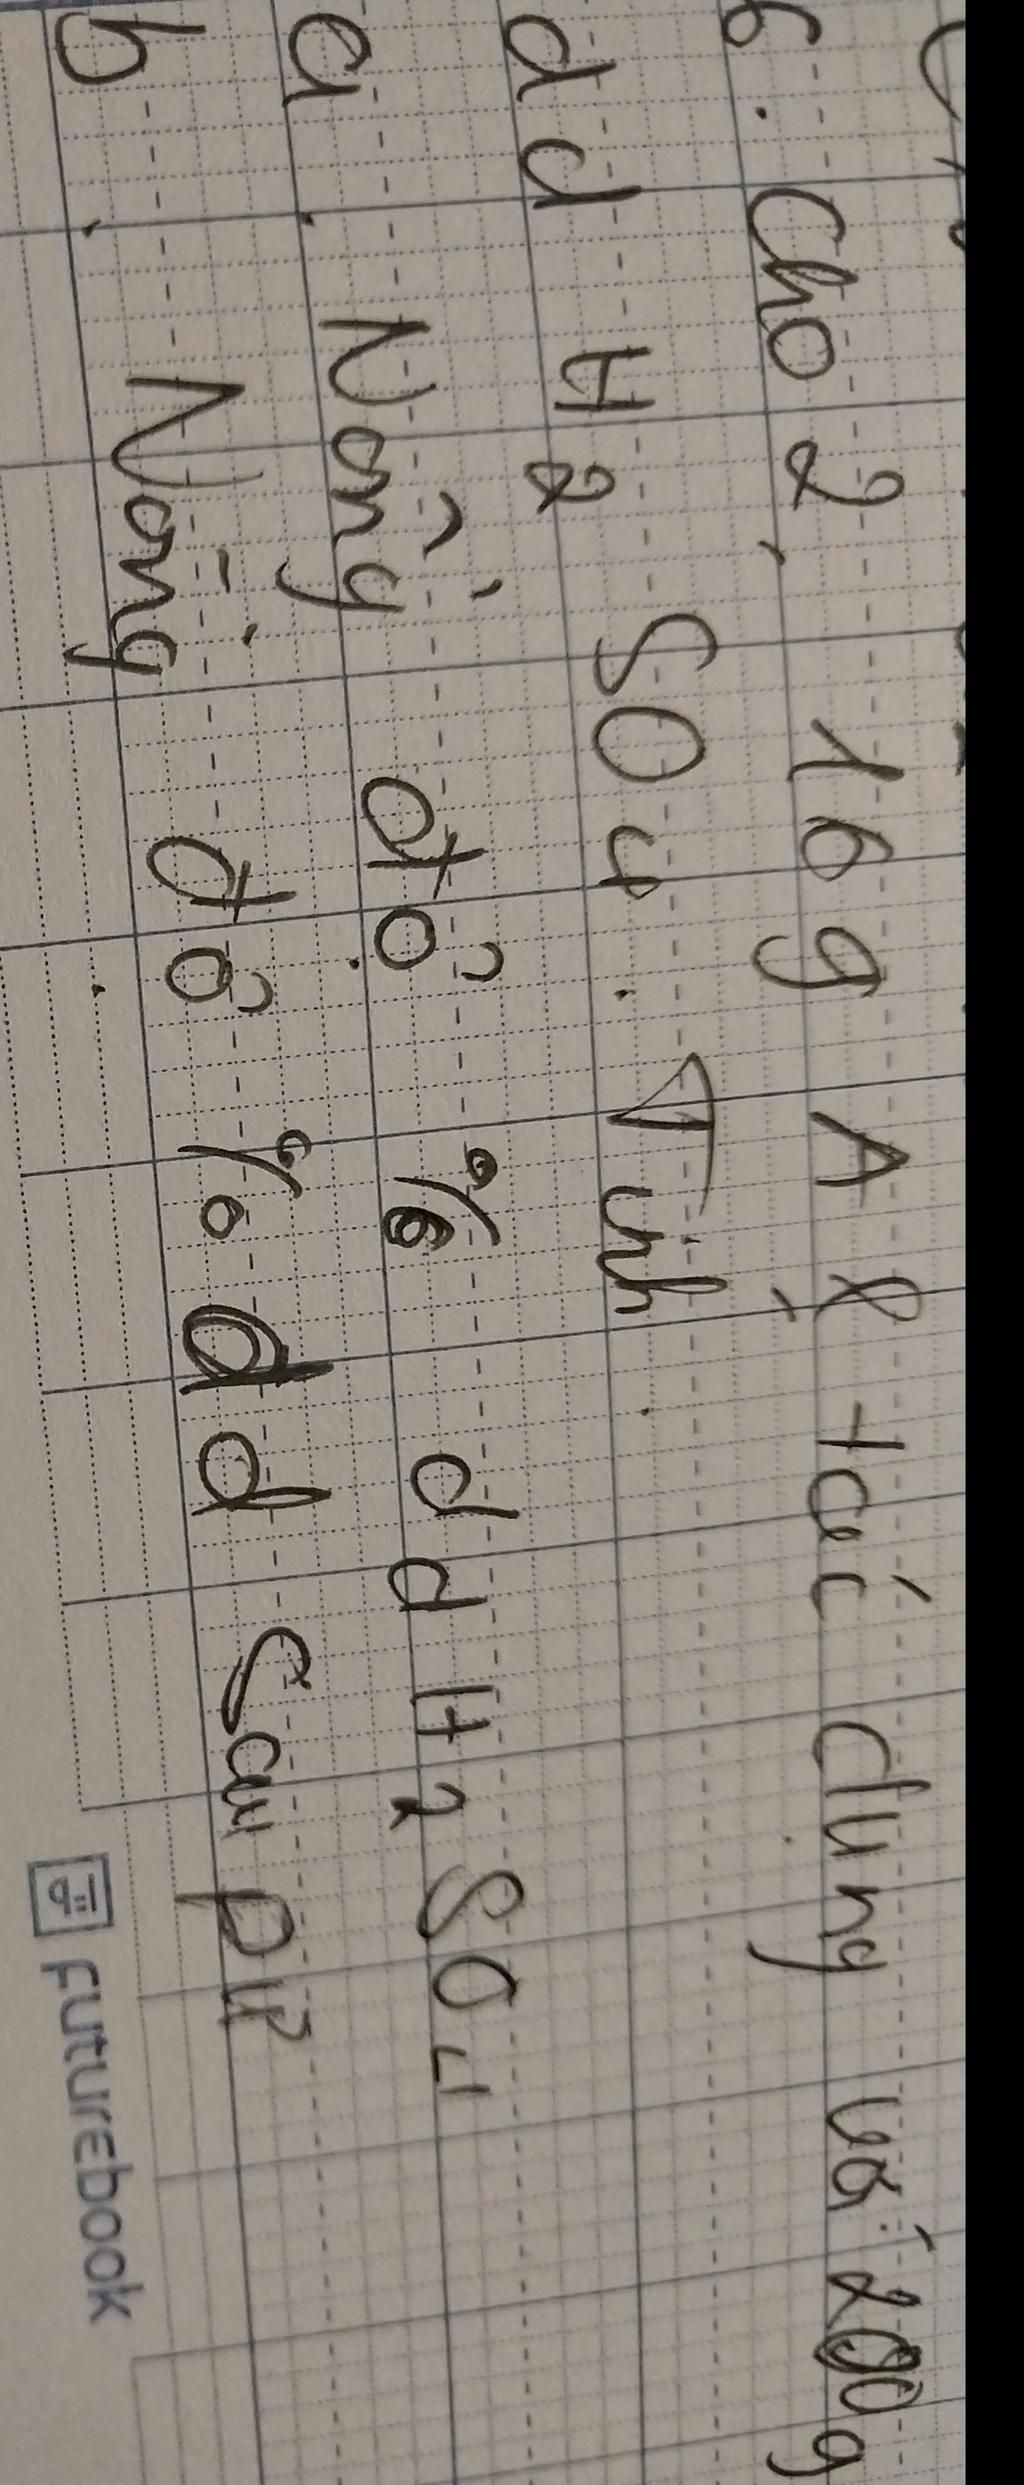 6. Cho 2,16g Al tác dụng với 200g
dd H2SO4. Tính.
a. Nồng độ % dd H2SO4
b. Nồng độ % dd sau pứ
FUTUREBOOK